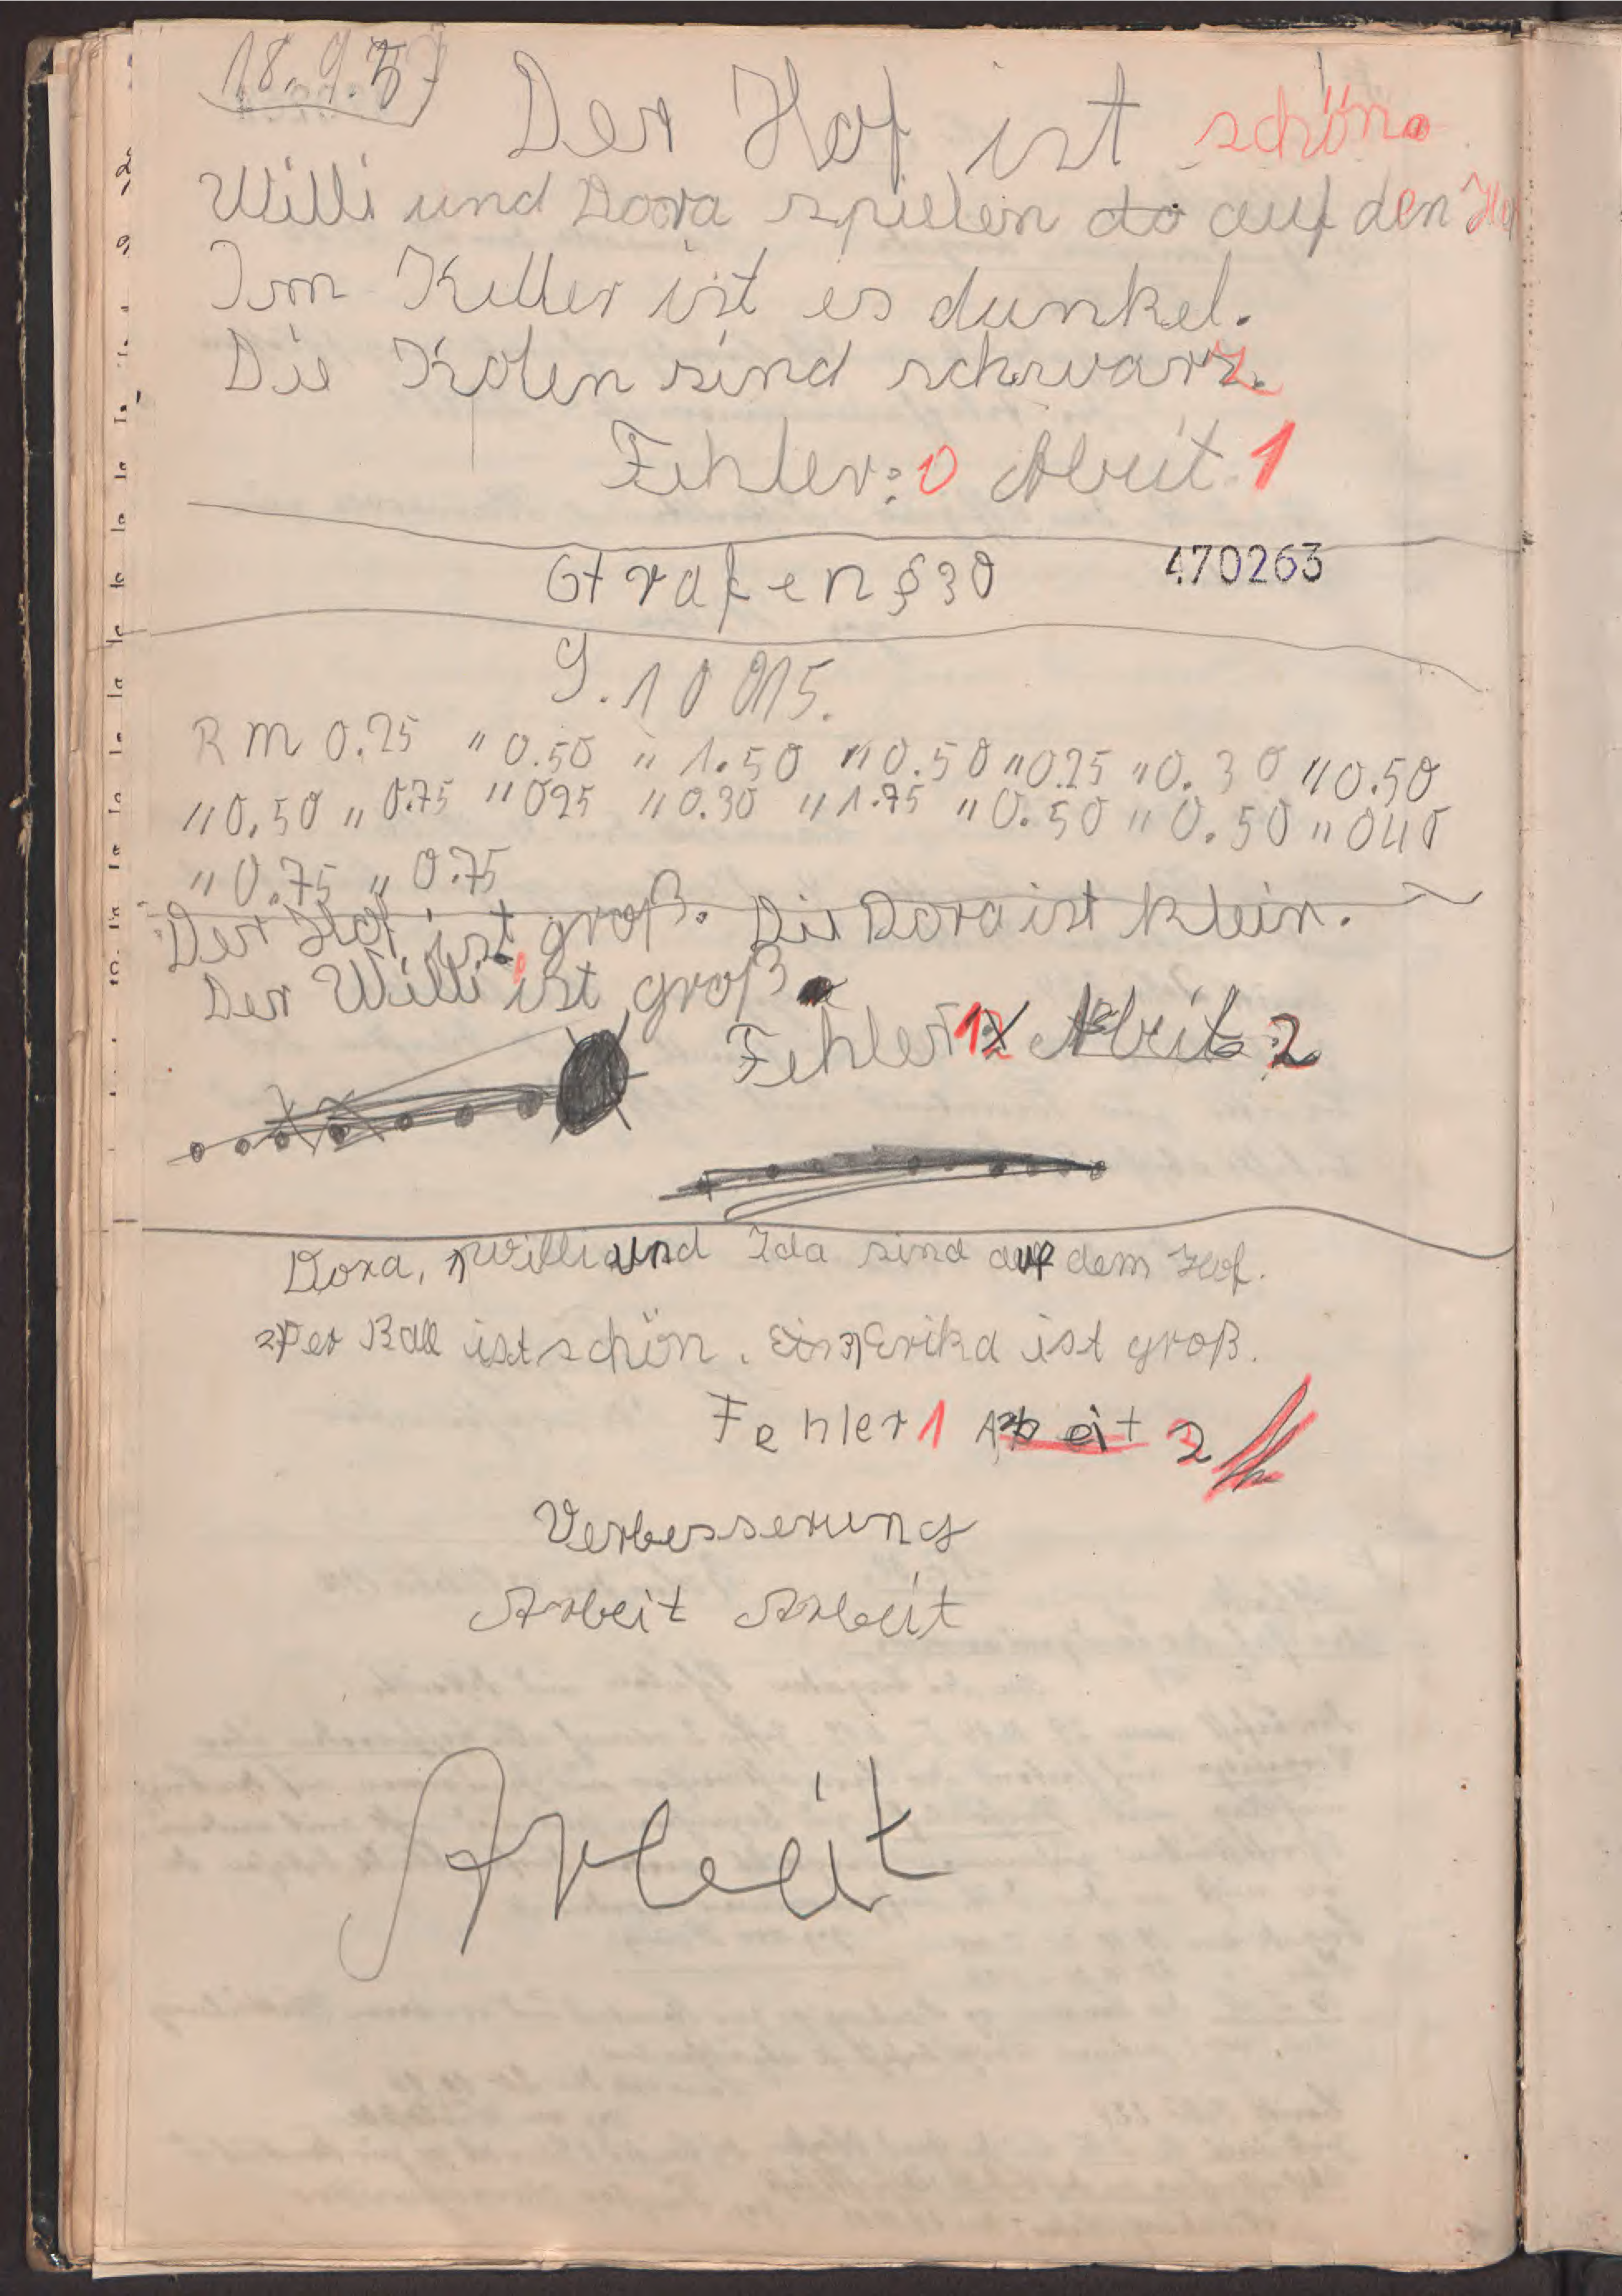 18.9.57
Der Hof ist schön.
Willi und Dora spielen do auf den Hof
Im Keller ist es dunkel.
Die Kolen sind schwarz.
Fehler: 0 Arbeit 1
Strafen § 30 470263
S. 10
RM 0.25 " 0.50 " 1.50 " 0.50 " 0.25 " 0.30 " 0.50
" 0.50 " 0.75 " 025 " 0.30 " 1.75 " 0.50 " 0.50 " 040
" 0.75 " 0.75
Der Hof ist groß. Die Dora ist klein.
Der Willi ist groß.
Fehler 12 Arbeit 2
Dora, Willi und Ida sind auf dem Hof.
2) Der Ball ist schön. 3) Erika ist groß.
Fehler 1 Arbeit 2
Verbesserung
Arbeit Arbeit
Arbeit